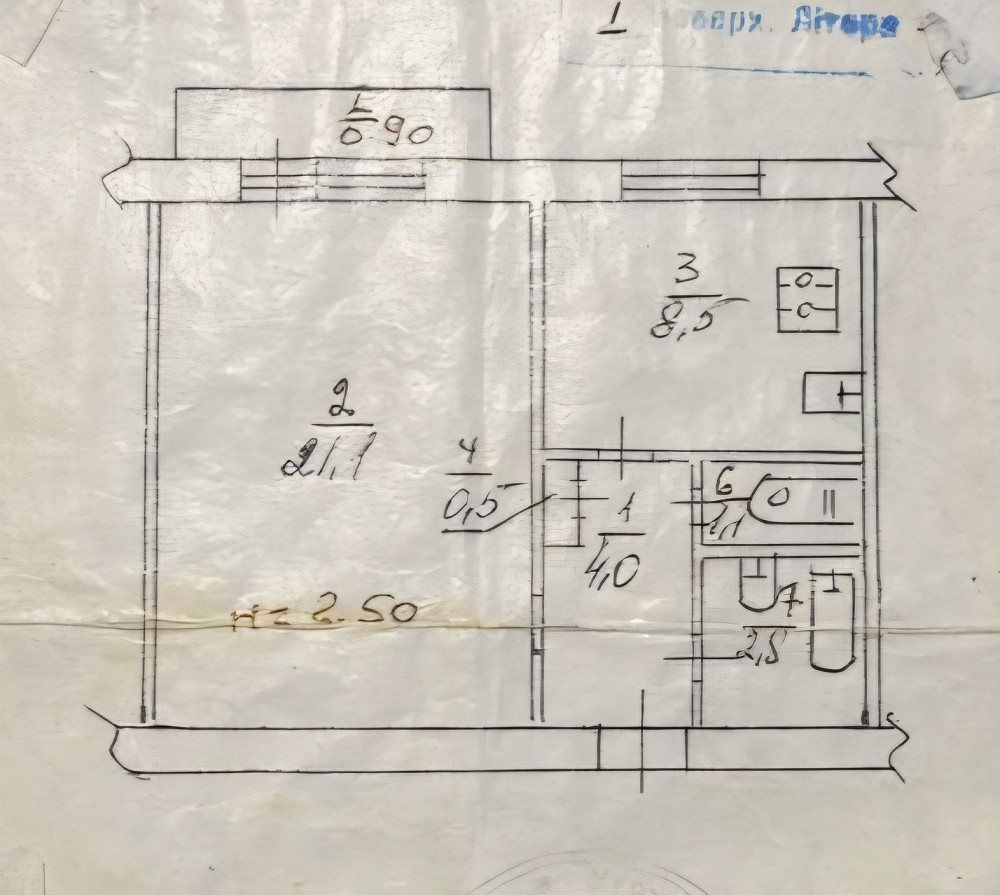 1
поверх. Літера
5
0.90
3
8,5
2
21,1
4
0,5
6
1
4,0
7
2,8
н = 2.50